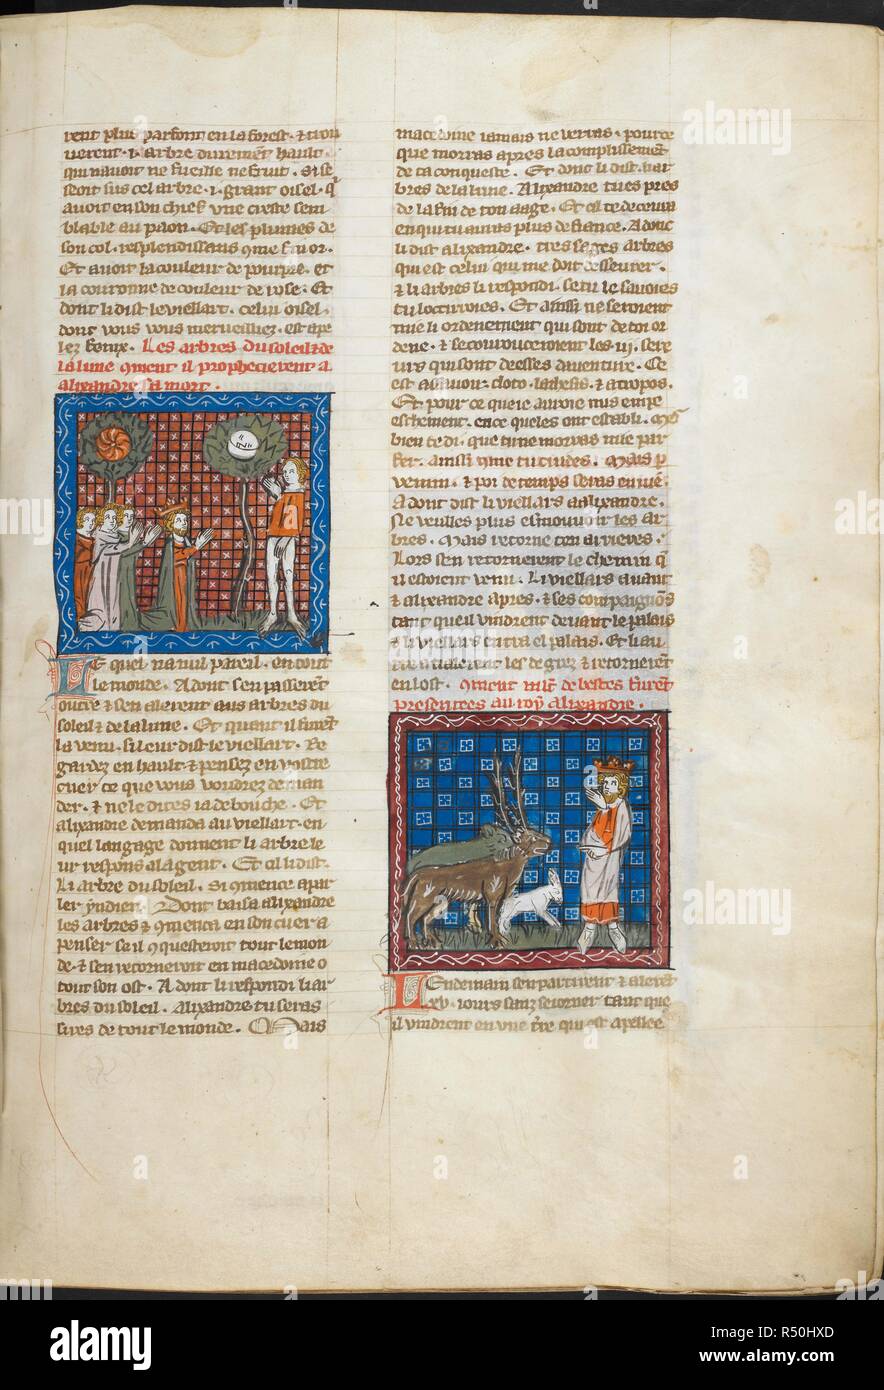 rent plus parfont en la forest · & trou
uerent · i · arbre durement hault ·
qui nauoit ne fueille ne fruit · Si se
seoit sus cel arbre · i · grant oisel · q̄
auoit en son chief vne creste sem
blable au paon · Et les plumes de
son col · resplendissans ꝯme fin or ·
Et auoit la couleur de pourpre · et
la couronne de couleur de rose · Et
dont li dist le viellart · celui oisel ·
dont vous vous merueilliez · est ape
lez fenix · Les arbres du soleil & de
la lune ꝯment il prophecierent a
alixandre sa mort ·
LE quel na nul pareil · en tout
le monde · Adont sen passerēt
outre & sen alerent aus arbres du
soleil & de la lune · Et quant il furēt
la venu · si leur dist le viellart · Re
gardez en hault & pensez en vostre
cuer ce que vous voudrez deman
der · & ne le dites ia de bouche · Et
alixandre demanda au viellart · en
quel langage donnent li arbre le
ur respons a la gent · Et cil li dist ·
Li arbre du soleil · si ꝯmence a par
ler yndien · Dont baisa alixandre
les arbres & ꝯmenca en son cuer a
penser sa il ꝯquesteroit tout le mon
de · & sen retorneroit en macedonie o
tout son ost · Adont li respondi li ar
bres du soleil · Alixandre tu seras
sires de tout le monde · Mais
macedoine iamais ne verras · pource
que morras apres lacomplissemēt
de ta conqueste · Et dont li dist · li ar
bres de la lune · Alixandre tu es pres
de la fin de ton aage · Et cil te deceura
en qui tu auras plus de fiance · Adonc
li dist alixandre · tres sages arbres
qui est celui qui me doit
& li arbres li respondi · se tu le sauoies
tu lociroies · Et ainsi ne seroient
mie li ordenement qui sont de toi or
dene · & se coucouceroient les · iij · sere
urs qui sont dresses dauenture · Ce
est cloto · lachesis · & atropos ·
Et pour ce que ie auroie mis
eschement · en ce queles ont establi ·
bien te di · que tu ne morras mie par
fer · ainsi ꝯme tu cuides · Mais p̄
venim · & poi de temps seras en uie ·
Adont dist li viellars a alixandre ·
Ne veulles plus esmouuoir les ar
bres · Mais retorne ten arrieres ·
Lors sen retornerent le chemin q̄
il estoient venu · Li viellars auant
& alixandre apres · & ses compaignōs
tant que il vindrent deuant le palais
& li viellars entra el palais · Et li au
tre aualerent les degrez & retornerēt
en lost · ꝯment de bestes furēt
presentees au roy alixandre ·
LEndemain sen partirent & alerēt
xv · iours sanz seiorner tant que
il vindrent en vne t̄re qui est apellee
alamy
alamy
Image ID: R50HXD
www.alamy.com